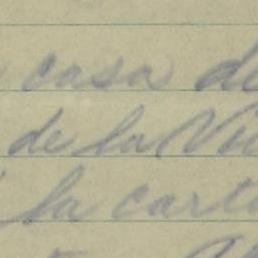 casa de
de la Vi
la carta